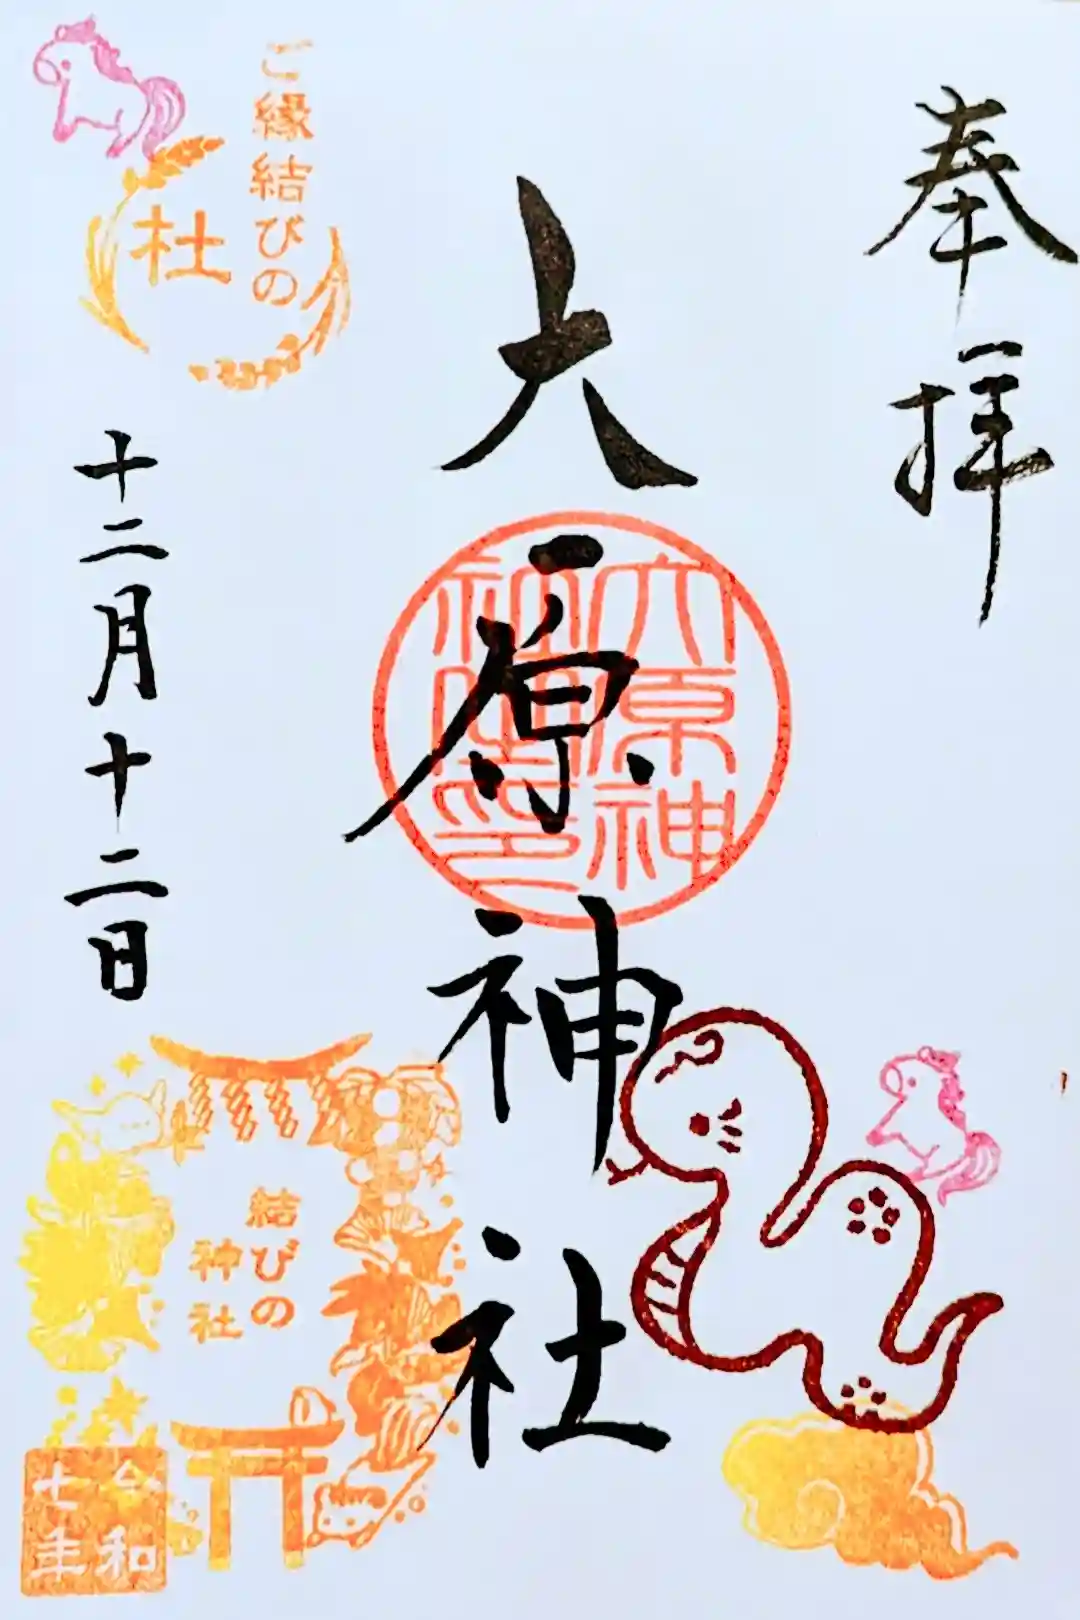 奉拝
大原神社
大原神
社
印
ご縁結びの
杜
十二月十二日
結びの
神社
令和
七年